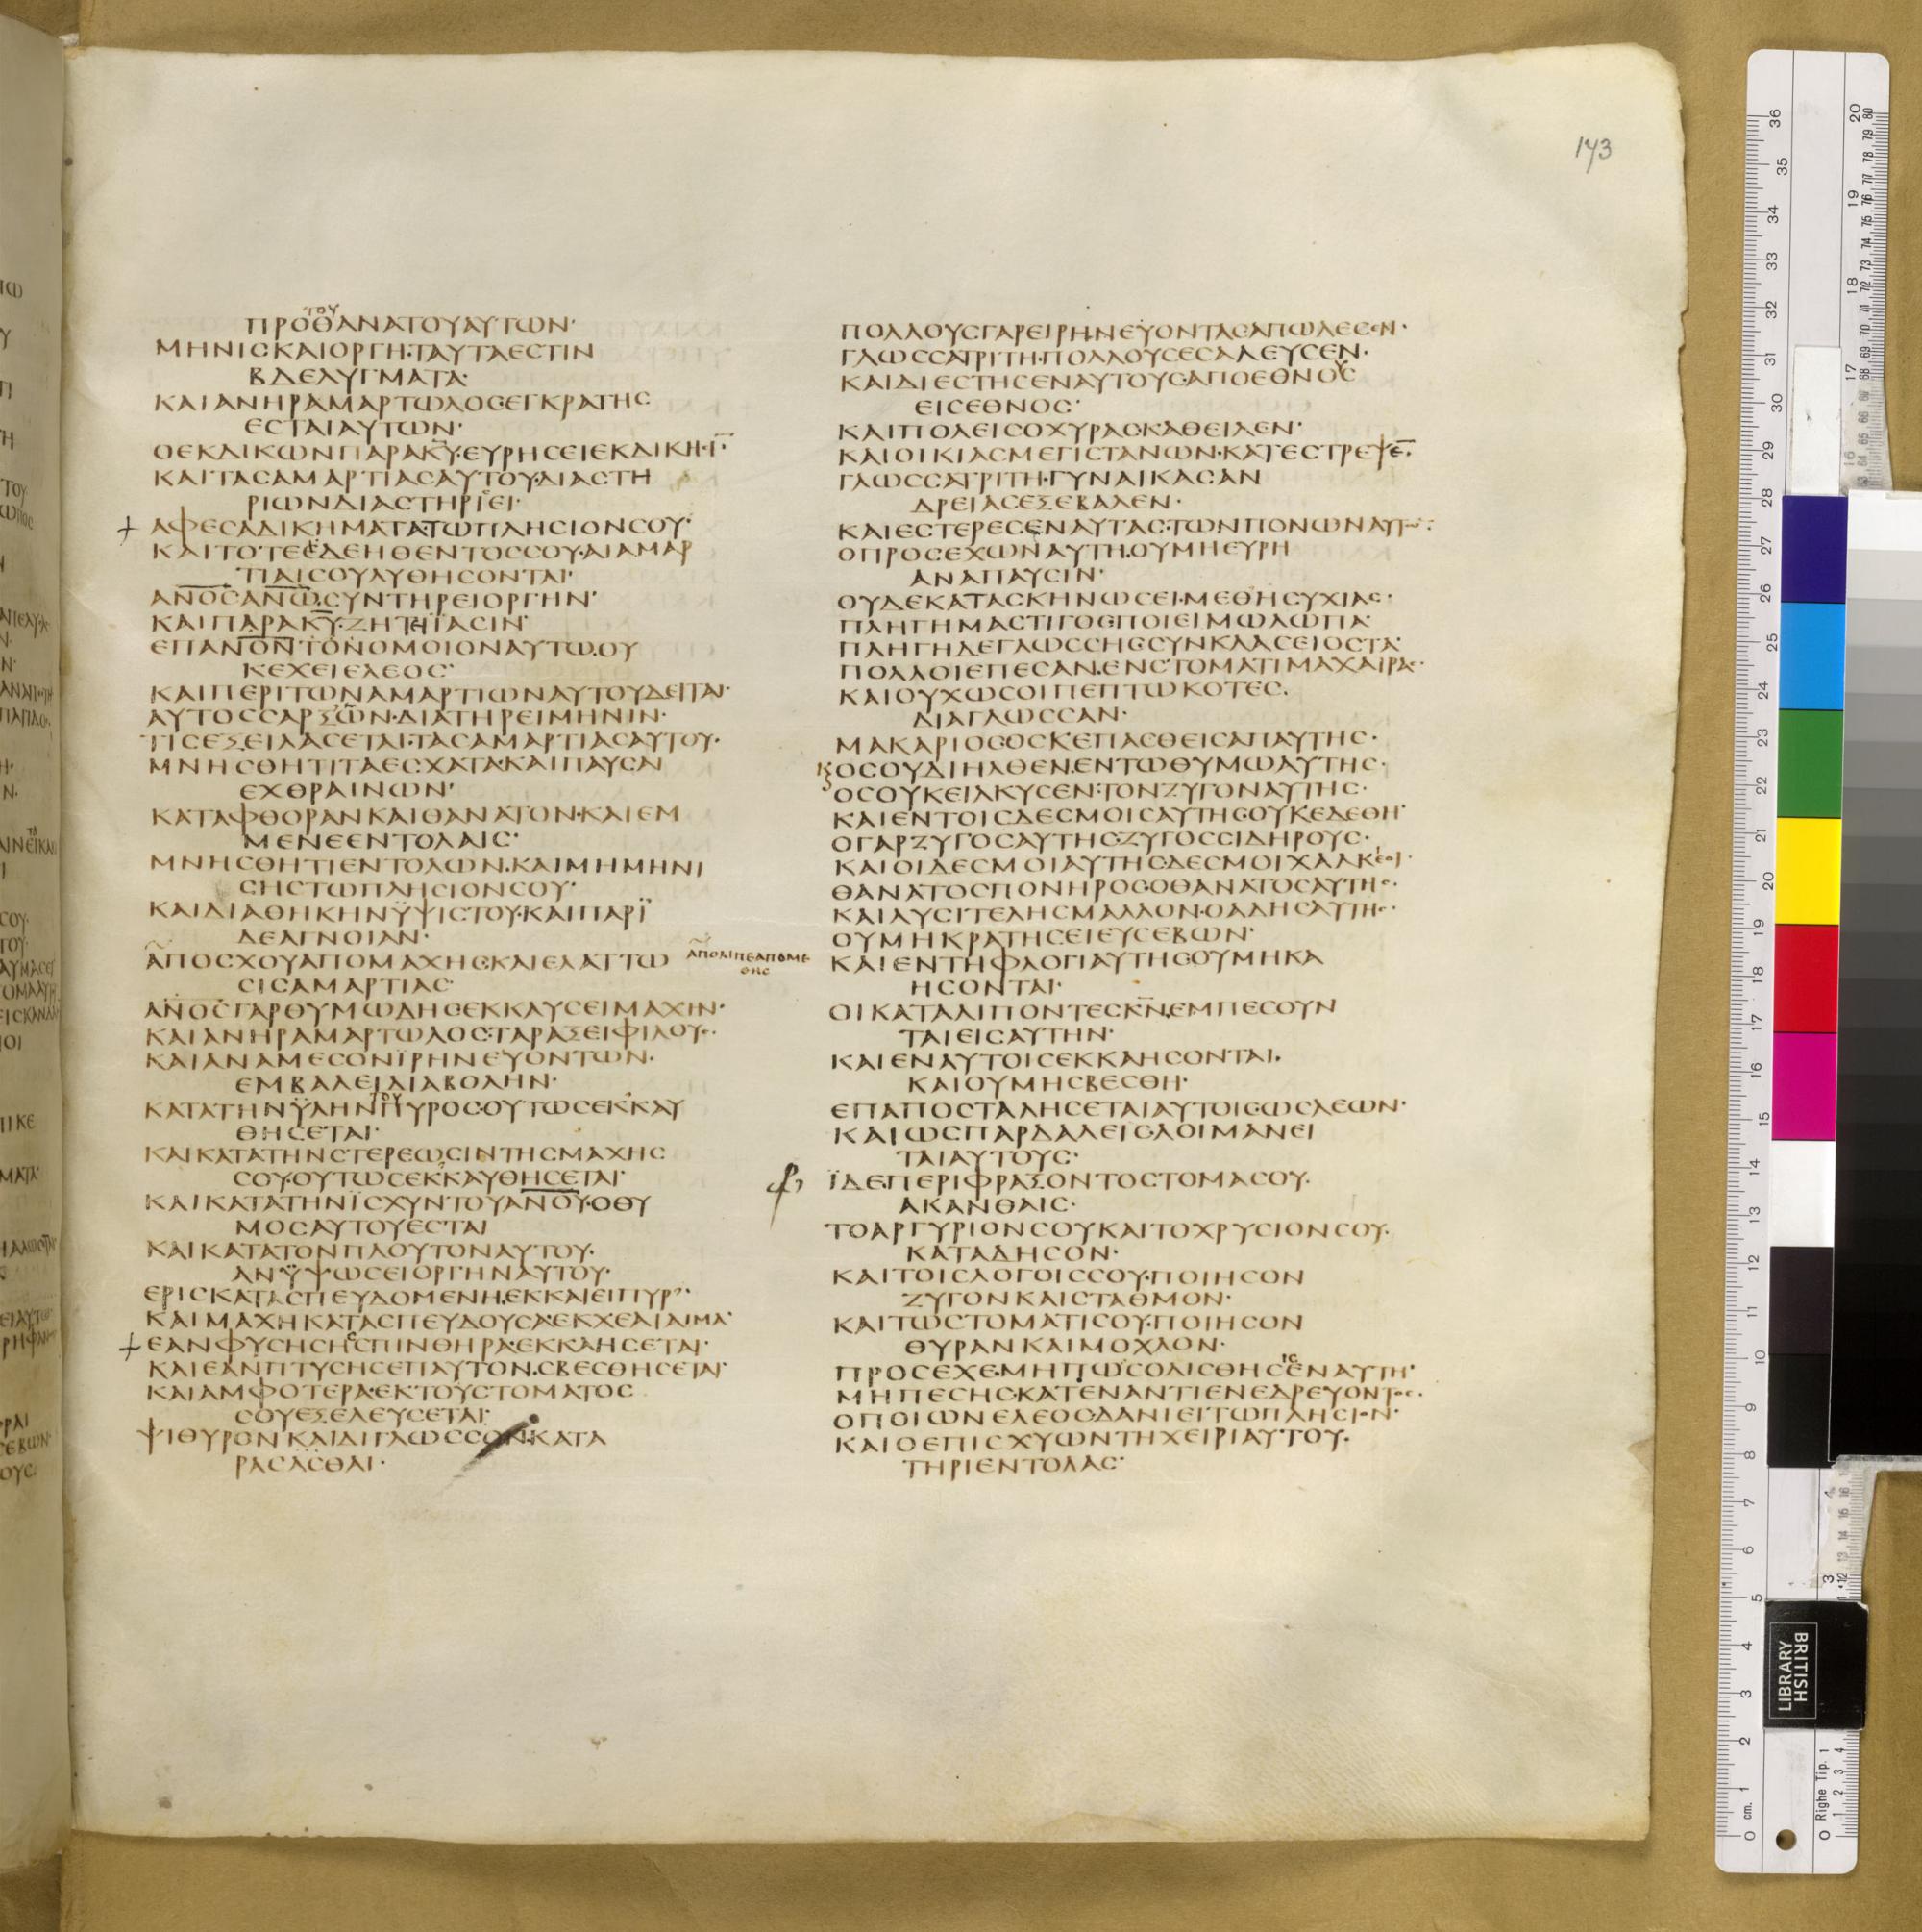 173
ΤΟΥ
ΠΡΟΘΑΝΑΤΟΥΑΥΤΩΝ·
ΜΗΝΙϹΚΑΙΟΡΓΗ·ΤΑΥΤΑΕϹΤΙΝ
ΒΔΕΛΥΓΜΑΤΑ·
ΚΑΙΑΝΗΡΑΜΑΡΤΩΛΟϹΕΓΚΡΑΤΗϹ
ΕϹΤΑΙΑΥΤΩΝ·
ΟΕΚΔΙΚΩΝΠΑΡΑΚ̅Υ̅·ΕΥΡΗϹΕΙΕΚΔΙΚΗ·
ΚΑΙΤΑϹΑΜΑΡΤΙΑϹΑΥΤΟΥ·ΔΙΑϹΤΗ
ΡΙΩΝΔΙΑϹΤΗΡΙΕΙ·
ΑΦΕϹΑΔΙΚΗΜΑΤΑΤΩΠΛΗϹΙΟΝϹΟΥ·
ΚΑΙΤΟΤΕϹΔΕΗΘΕΝΤΟϹϹΟΥ·ΑΙΑΜΑΡ
ΤΙΑΙϹΟΥΛΥΘΗϹΟΝΤΑΙ·
Α̅Ν̅Ο̅Ϲ̅Α̅Ν̅Ω̅·ϹΥΝΤΗΡΕΙΟΡΓΗΝ·
ΚΑΙΠΑΡΑΚ̅Υ̅·ΖΗΤΕΙΪΑϹΙΝ·
ΕΠΑ̅Ν̅Ο̅Ν̅ΤΟΝΟΜΟΙΟΝΑΥΤΩ·ΟΥ
ΚΕΧΕΙΕΛΕΟϹ·
ΚΑΙΠΕΡΙΤΩΝΑΜΑΡΤΙΩΝΑΥΤΟΥΔΕΙΤΑΙ·
ΑΥΤΟϹϹΑΡΞΩΝ·ΔΙΑΤΗΡΕΙΜΗΝΙΝ·
ΤΙϹΕΞΕΙΛΑϹΕΤΑΙ·ΤΑϹΑΜΑΡΤΙΑϹΑΥΤΟΥ·
ΜΝΗϹΘΗΤΙΤΑΕϹΧΑΤΑ·ΚΑΙΠΑΥϹΑΙ
ΕΧΘΡΑΙΝΩΝ·
ΚΑΤΑΦΘΟΡΑΝΚΑΙΘΑΝΑΤΟΝ·ΚΑΙΕΜ
ΜΕΝΕΕΝΤΟΛΑΙϹ·
ΜΝΗϹΘΗΤΙΕΝΤΟΛΩΝ·ΚΑΙΜΗΜΗΝΙ
ϹΗϹΤΩΠΛΗϹΙΟΝϹΟΥ·
ΚΑΙΔΙΑΘΗΚΗΝΫΨΙϹΤΟΥ·ΚΑΙΠΑΡΪ
ΔΕΑΓΝΟΙΑΝ·
ΑΠΟϹΧΟΥΑΠΟΜΑΧΗϹ·ΚΑΙΕΛΑΤΤΩ
ϹΙϹΑΜΑΡΤΙΑϹ·
Α̅Ν̅Ο̅Ϲ̅ΓΑΡΘΥΜΩΔΗϹΕΚΚΑΥϹΕΙΜΑΧΙΝ·
ΚΑΙΑΝΗΡΑΜΑΡΤΩΛΟϹ·ΤΑΡΑΞΕΙΦΙΛΟΥϲ·
ΚΑΙΑΝΑΜΕϹΟΝΪΡΗΝΕΥΟΝΤΩΝ·
ΕΜΒΑΛΕΙΔΙΑΒΟΛΗΝ·
ΤΟΥ
ΚΑΤΑΤΗΝΫΛΗΝΠΥΡΟϹ·ΟΥΤΩϹΕΚΚΑΥ
ΘΗϹΕΤΑΙ·
ΚΑΙΚΑΤΑΤΗΝϹΤΕΡΕΩϹΙΝΤΗϹΜΑΧΗϹ
ϹΟΥ·ΟΥΤΩϹΕΚΚΑΥΘΗϹΕΤΑΙ·
ΚΑΙΚΑΤΑΤΗΝΪϹΧΥΝΤΟΥΑ̅Ν̅Ο̅Υ̅·ΟΘΥ
ΜΟϹΑΥΤΟΥΕϹΤΑΙ
ΚΑΙΚΑΤΑΤΟΝΠΛΟΥΤΟΝΑΥΤΟΥ·
ΑΝΫΨΩϹΕΙΟΡΓΗΝΑΥΤΟΥ·
ΕΡΙϹΚΑΤΑϹΠΕΥΔΟΜΕΝΗ·ΕΚΚΑΙΕΙΠΥΡ·
ΚΑΙΜΑΧΗΚΑΤΑϹΠΕΥΔΟΥϹΑ·ΕΚΧΕΑΙΑΙΜΑ·
ΕΑΝΦΥϹΗϹΗϹϹΠΙΝΘΗΡΑ·ΕΚΚΑΗϹΕΤΑΙ·
ΚΑΙΕΑΝΠΤΥϹΗϹΕΠΑΥΤΟΝ·ϹΒΕϹΘΗϹΕΤΑΙ·
ΚΑΙΑΜΦΟΤΕΡΑ·ΕΚΤΟΥϹΤΟΜΑΤΟϹ
ϹΟΥΕΞΕΛΕΥϹΕΤΑΙ·
ΨΙΘΥΡΟΝΚΑΙΔΙΓΛΩϹϹΟΝ·ΚΑΤΑ
ΡΑϹΑϹΘΑΙ·
ΠΟΛΛΟΥϹΓΑΡΕΙΡΗΝΕΥΟΝΤΑϹΑΠΩΛΕϹΕΝ·
ΓΛΩϹϹΑΤΡΙΤΗ·ΠΟΛΛΟΥϹΕϹΑΛΕΥϹΕΝ·
ΚΑΙΔΙΕϹΤΗϹΕΝΑΥΤΟΥϹ·ΑΠΟΕΘΝΟΥϹ
ΕΙϹΕΘΝΟϹ·
ΚΑΙΠΟΛΕΙϹΟΧΥΡΑϹ·ΚΑΘΕΙΛΕΝ·
ΚΑΙΟΙΚΙΑϹΜΕΓΙϹΤΑΝΩΝ·ΚΑΤΕϹΤΡΕΨΕ̅·
ΓΛΩϹϹΑΤΡΙΤΗ·ΓΥΝΑΙΚΑϹΑΝ
ΔΡΕΙΑϹΕΞΕΒΑΛΕΝ·
ΚΑΙΕϹΤΕΡΕϹΕΝΑΥΤΑϹ·ΤΩΝΠΟΝΩΝΑΥΤΩ·
ΟΠΡΟϹΕΧΩΝΑΥΤΗ·ΟΥΜΗΕΥΡΗ
ΑΝΑΠΑΥϹΙΝ·
ΟΥΔΕΚΑΤΑϹΚΗΝΩϹΕΙ·ΜΕΘΗϹΥΧΙΑϹ·
ΠΛΗΓΗΜΑϹΤΙΓΟϹΠΟΙΕΙΜΩΛΩΠΑ·
ΠΛΗΓΗΔΕΓΛΩϹϹΗϹ·ϹΥΝΚΛΑϹΕΙΟϹΤΑ·
ΠΟΛΛΟΙΕΠΕϹΑΝ·ΕΝϹΤΟΜΑΤΙΜΑΧΑΙΡΑϲ·
ΚΑΙΟΥΧΩϹΟΙΠΕΠΤΩΚΟΤΕϹ·
ΔΙΑΓΛΩϹϹΑΝ·
ΜΑΚΑΡΙΟϹΟϹΚΕΠΑϹΘΕΙϹΑΠΑΥΤΗϹ·
ΟϹΟΥΔΙΗΛΘΕΝ·ΕΝΤΩΘΥΜΩΑΥΤΗϹ·
ΟϹΟΥΚΕΙΛΚΥϹΕΝ·ΤΟΝΖΥΓΟΝΑΥΤΗϹ·
ΚΑΙΕΝΤΟΙϹΔΕϹΜΟΙϹΑΥΤΗϹΟΥΚΕΔΕΘΗ·
ΟΓΑΡΖΥΓΟϹΑΥΤΗϹ·ΖΥΓΟϹϹΙΔΗΡΟΥϹ·
ΚΑΙΟΙΔΕϹΜΟΙΑΥΤΗϹ·ΔΕϹΜΟΙΧΑΛΚΕΟΙ·
ΘΑΝΑΤΟϹΠΟΝΗΡΟϹΟΘΑΝΑΤΟϹΑΥΤΗϲ·
ΚΑΙΛΥϹΙΤΕΛΗϹΜΑΛΛΟΝ·ΟΑΔΗϹΑΥΤΗϲ·
ΟΥΜΗΚΡΑΤΗϹΕΙΕΥϹΕΒΩΝ·
ΚΑΙΕΝΤΗΦΛΟΓΙΑΥΤΗϹΟΥΜΗΚΑ
ΗϹΟΝΤΑΙ·
ΟΙΚΑΤΑΛΙΠΟΝΤΕϹΚ̅Ν̅·ΕΜΠΕϹΟΥΝ
ΤΑΙΕΙϹΑΥΤΗΝ·
ΚΑΙΕΝΑΥΤΟΙϹΕΚΚΑΗϹΟΝΤΑΙ·
ΚΑΙΟΥΜΗϹΒΕϹΘΗ·
ΕΠΑΠΟϹΤΑΛΗϹΕΤΑΙΑΥΤΟΙϹΩϹΛΕΩΝ·
ΚΑΙΩϹΠΑΡΔΑΛΕΙϹ·ΛΟΙΜΑΝΕΙ
ΤΑΙΑΥΤΟΥϹ·
ΪΔΕΠΕΡΙΦΡΑΞΟΝΤΟϹΤΟΜΑϹΟΥ·
ΑΚΑΝΘΑΙϹ·
ΤΟΑΡΓΥΡΙΟΝϹΟΥΚΑΙΤΟΧΡΥϹΙΟΝϹΟΥ·
ΚΑΤΑΔΗϹΟΝ·
ΚΑΙΤΟΙϹΛΟΓΟΙϹϹΟΥ·ΠΟΙΗϹΟΝ
ΖΥΓΟΝΚΑΙϹΤΑΘΜΟΝ·
ΚΑΙΤΩϹΤΟΜΑΤΙϹΟΥ·ΠΟΙΗϹΟΝ
ΘΥΡΑΝΚΑΙΜΟΧΛΟΝ·
ΠΡΟϹΕΧΕ·ΜΗΠΩϹΟΛΙϹΘΗϹΕΝΑΥΤΗ·
ΜΗΠΕϹΗϹ·ΚΑΤΕΝΑΝΤΙΕΝΕΔΡΕΥΟΝΤΟϲ·
ΟΠΟΙΩΝΕΛΕΟϹ·ΔΑΝΙΕΙΤΩΠΛΗϹΙΟΝ·
ΚΑΙΟΕΠΙϹΧΥΩΝΤΗΧΕΙΡΙΑΥΤΟΥ·
ΤΗΡΙΕΝΤΟΛΑϹ·
BRITISH
LIBRARY